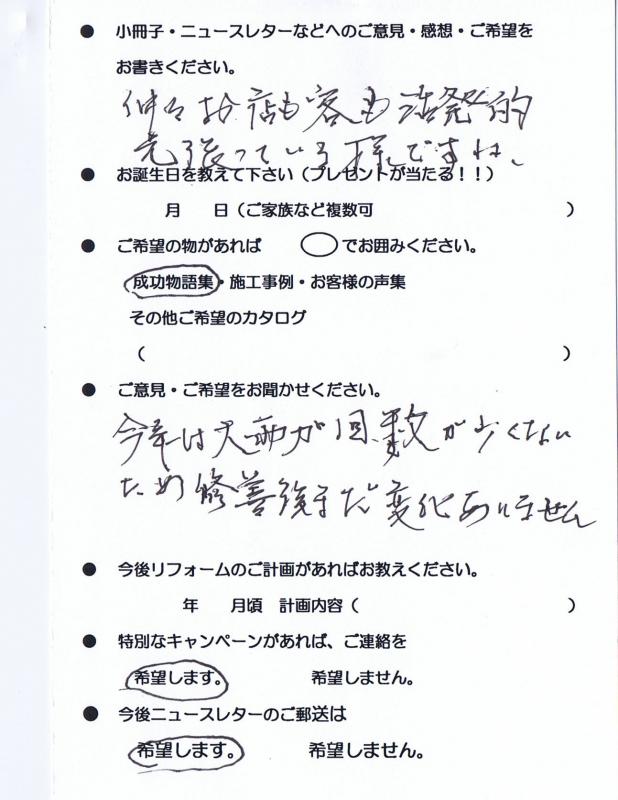 ● 小冊子・ニュースレターなどへのご意見・感想・ご希望を
お書きください。
仲々お店も客も活発的
見張っている様ですね、
● お誕生日を教えて下さい（プレゼントが当たる！！）
月 日（ご家族など複数可 ）
● ご希望の物があれば ◯でお囲みください。
成功物語集・施工事例・お客様の声集
その他ご希望のカタログ
（ ）
● ご意見・ご希望をお聞かせください。
今年は大雨が回数が少くない
ため修善後まだ変化ありません
● 今後リフォームのご計画があればお教えください。
年 月頃 計画内容（ ）
● 特別なキャンペーンがあれば、ご連絡を
希望します。 希望しません。
● 今後ニュースレターのご郵送は
希望します。 希望しません。